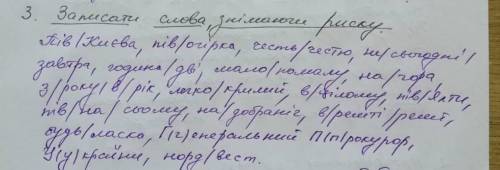 3. Записати слова, знімаючи риску
Пів/Києва, пів/огірка, честь/честю, ни/сьогодні/
завтра, година/дві, мало/помалу, на/гора,
з/року/в/рік, легко/крилий, в/цілому, пів/Ялти,
пів/на/сьому, на/добраніч, в/решті/решт,
будь/ласка, Г(г)енеральний П(п)рокурор,
У(у)країни, норд/вест.